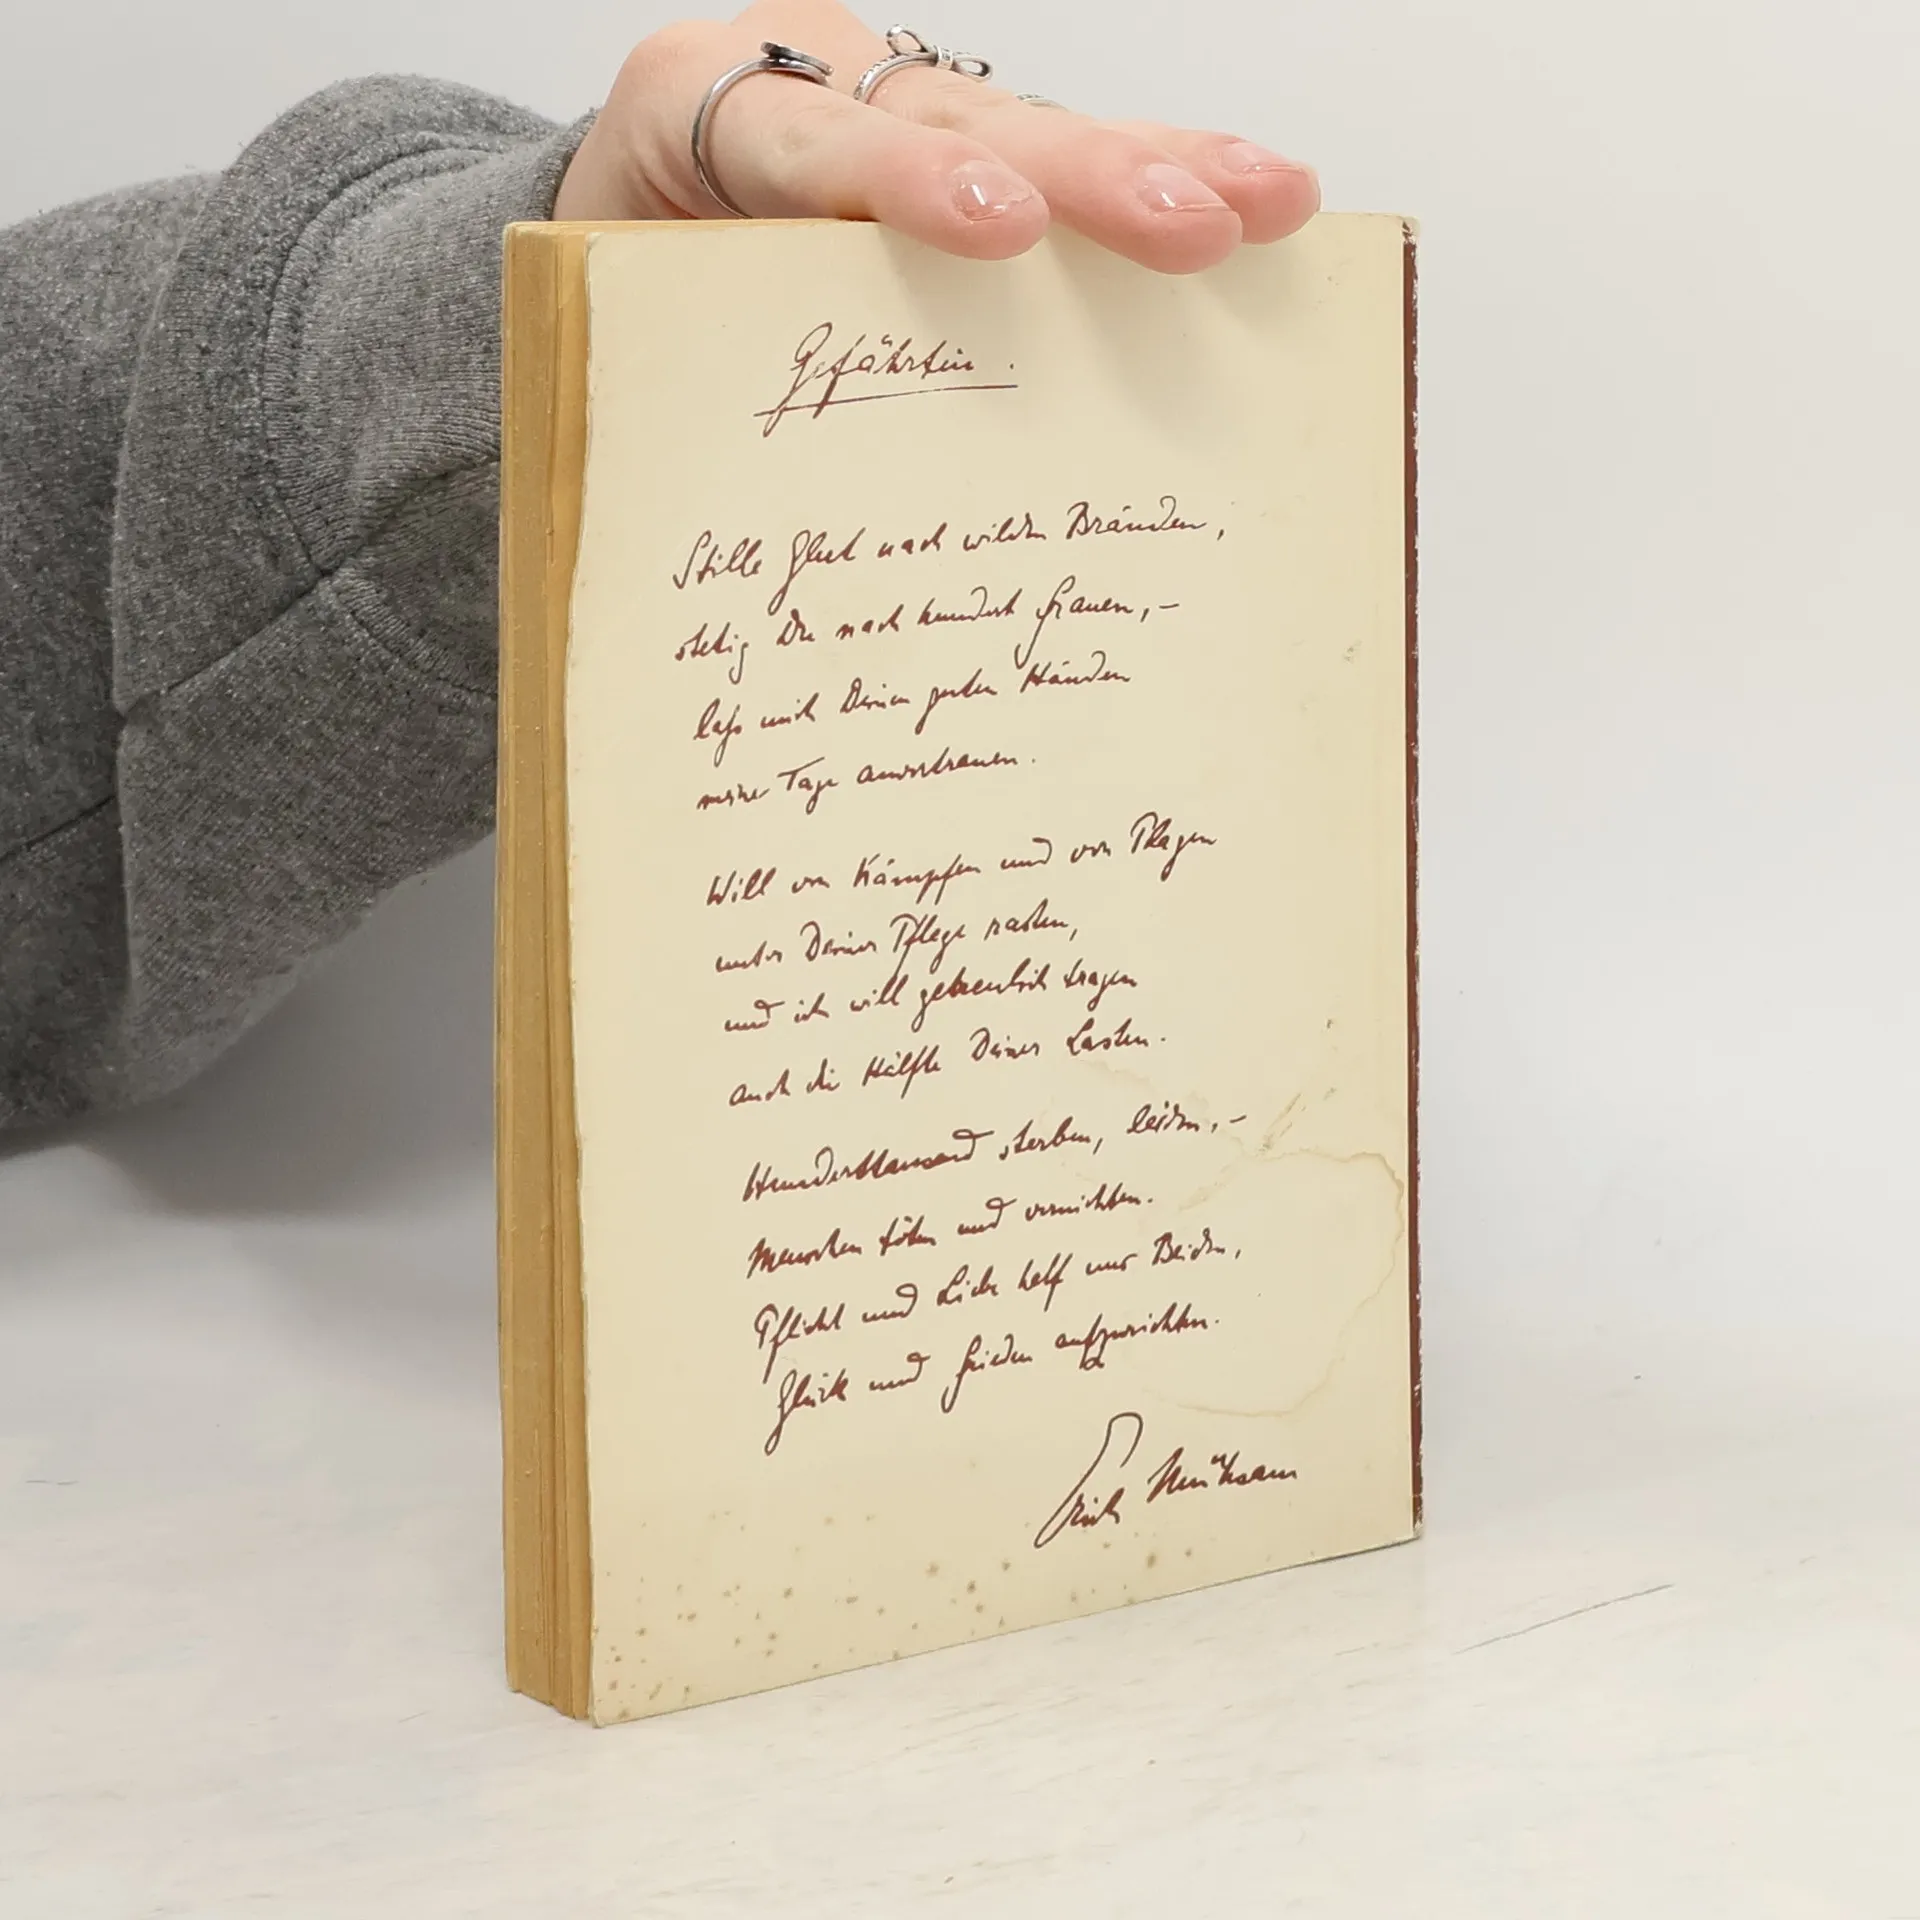 Gefährtin.
Stille Glut nach wilden Bränden,
stetig Du nach hundert Frauen, –
laß mich Deinen guten Händen
meine Tage anvertrauen.
Will von Kämpfen und von Plagen
unter Deiner Pflege rasten,
und ich will getreulich tragen
auch die Hälfte Deiner Lasten.
Hunderttausend sterben, leiden, –
Menschen töten und vernichten.
Pflicht und Liebe helf uns Beiden,
Glück und Frieden aufzurichten.
Erich Mühsam